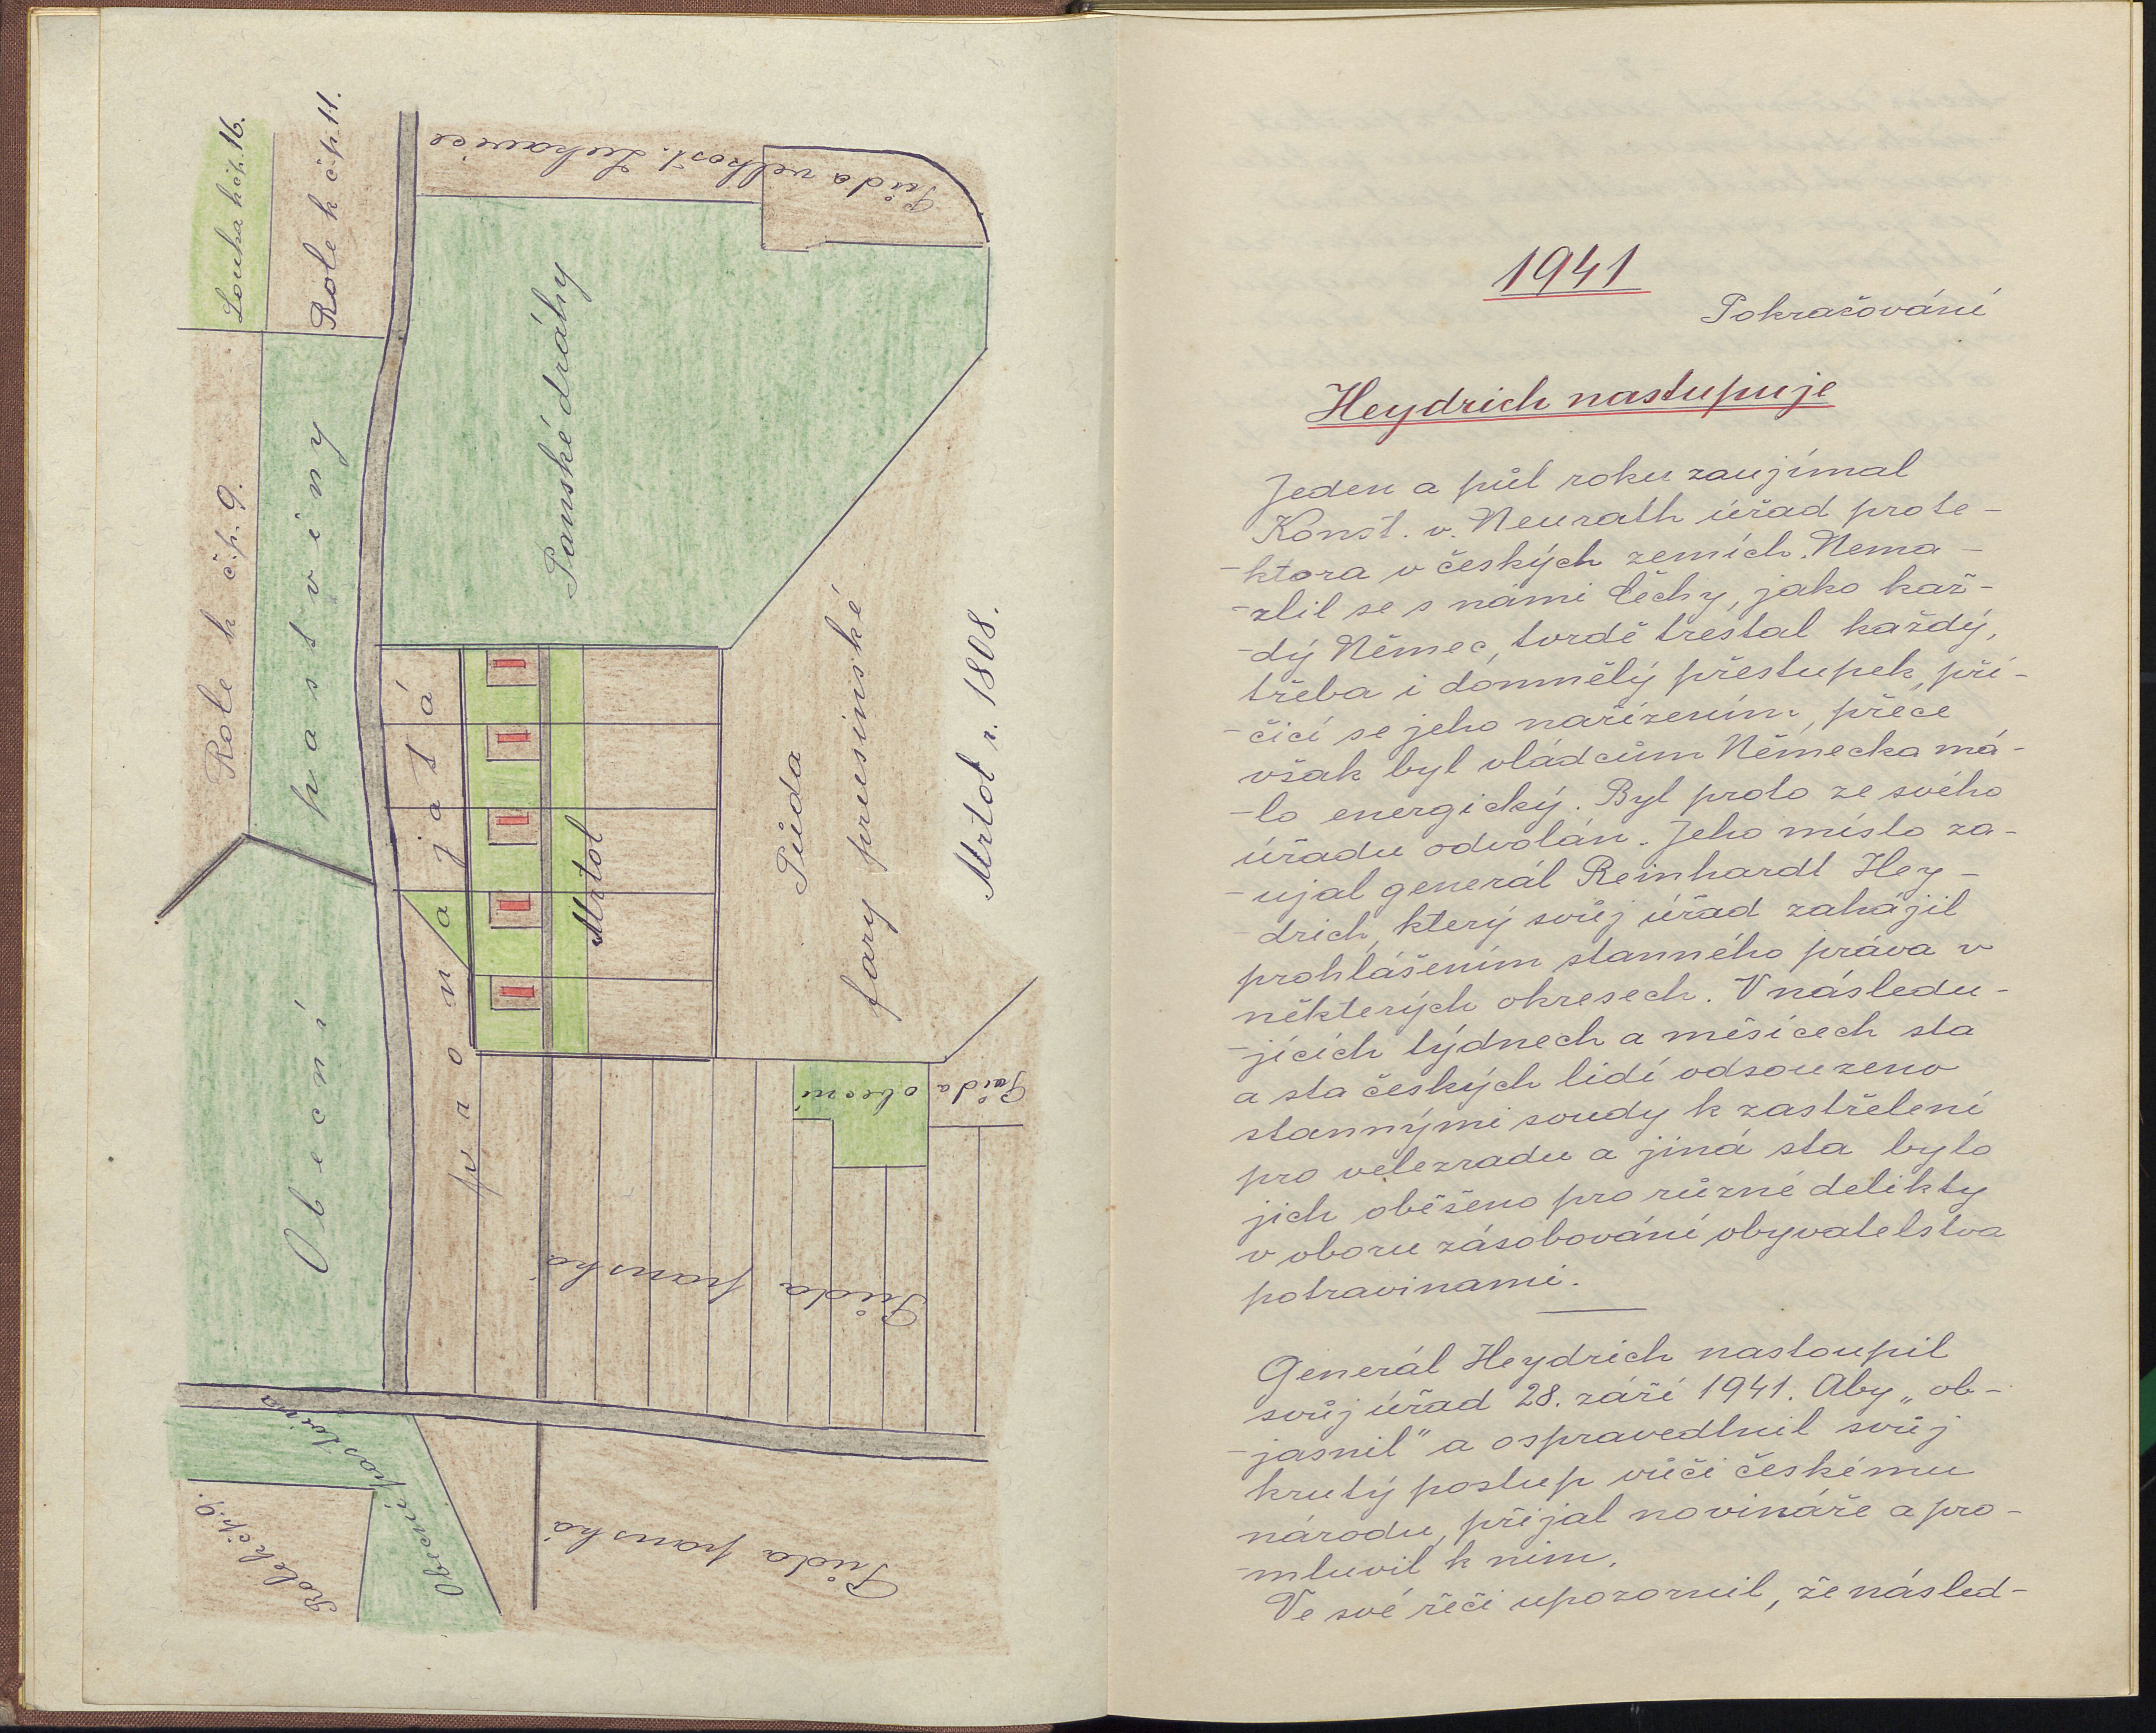 Louka k čp. 16.
Role k čp. 11.
Půda velkost. Lukavice
Role k č.p. 9.
Obecní pastviny
Panské dráhy
pronajatá
Mrtol
Půda
fary prusinské
Mrtol r. 1808.
Půda
obecní
Půda panská
Obecní pastvina
Role k čp. 9.
Půda panská
1941
Pokračování
Heydrich nastupuje
Jeden a půl roku zaujímal
Konst. v. Neurath úřad prote-
-ktora v českých zemích. Nema-
-zlil se s námi Čechy, jako kaž-
-dý Němec, tvrdě trestal každý,
třeba i domnělý přestupek, pří-
-čící se jeho nařízením, přece
však byl vládcům Německa má-
-lo energický. Byl proto ze svého
úřadu odvolán. Jeho místo za-
-ujal generál Reinhardt Hey-
-drich, který svůj úřad zahájil
prohlášením stanného práva v
některých okresech. V následu-
-jících týdnech a měsících sta
a sta českých lidí odsouzeno
stannými soudy k zastřelení
pro velezradu a jiná sta bylo
jich oběšeno pro různé delikty
v oboru zásobování obyvatelstva
potravinami.
Generál Heydrich nastoupil
svůj úřad 28. září 1941. Aby „ob-
-jasnil" a ospravedlnil svůj
krutý postup vůči českému
národu, přijal novináře a pro-
-mluvil k nim.
Ve své řeči upozornil, že násled-